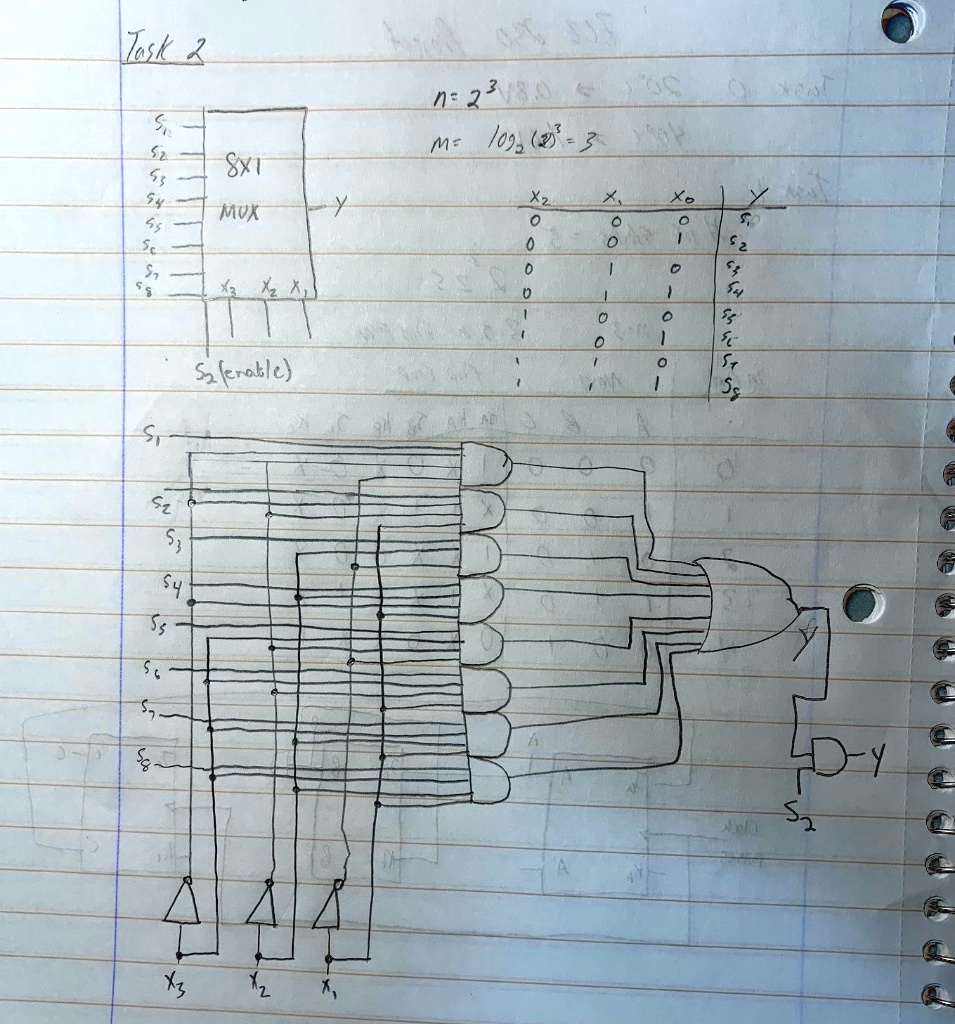 Task 2
n= 2³
m= log₂(2)³ = 3
S₁
S₂
S₃
S₄
S₅
S₆
S₇
S₈
8X1
MUX
Y
X₃ X₂ X₁
S₂(enable)
X₂ X₁ X₀ Y
0 0 0 S₁
0 0 1 S₂
0 1 0 S₃
0 1 1 S₄
1 0 0 S₅
1 0 1 S₆
1 1 0 S₇
1 1 1 S₈
S₁
S₂
S₃
S₄
S₅
S₆
S₇
S₈
Y
Y
S₂
X₃ X₂ X₁